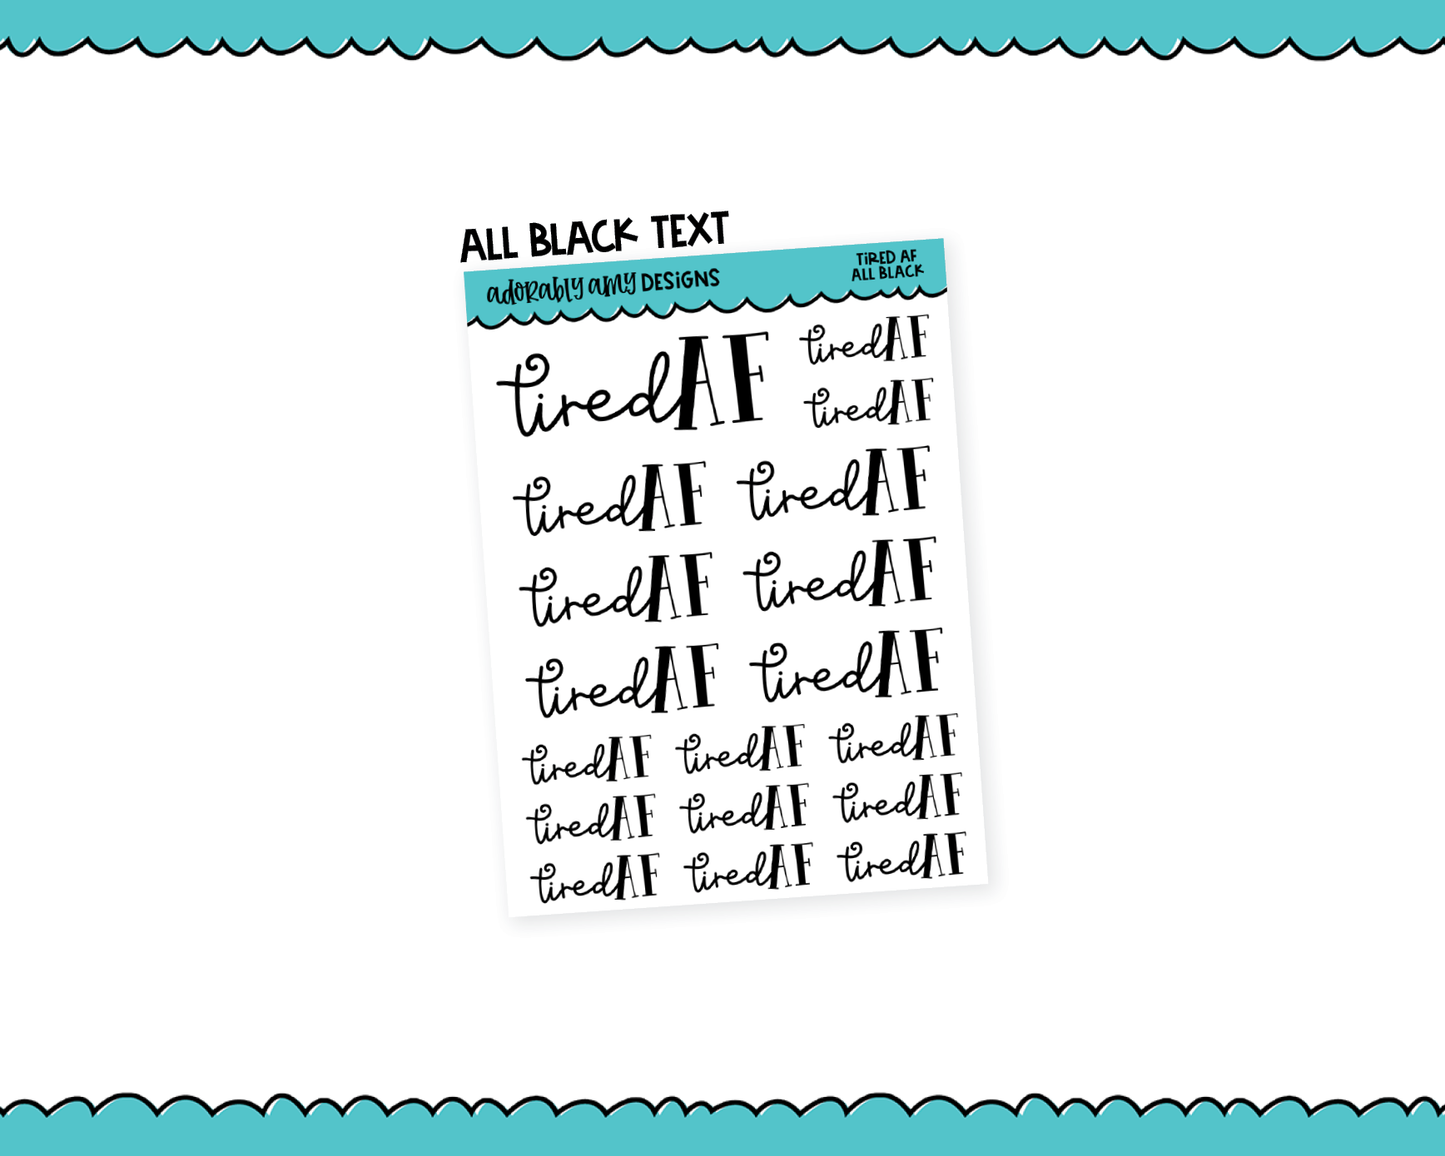 ALL BLACK TEXT
adorably amy DESiGNS
TiRED AF
ALL BLACK
tired AF
tired AF
tired AF
tired AF tired AF
tired AF tired AF
tired AF tired AF
tired AF tired AF tired AF
tired AF tired AF tired AF
tired AF tired AF tired AF